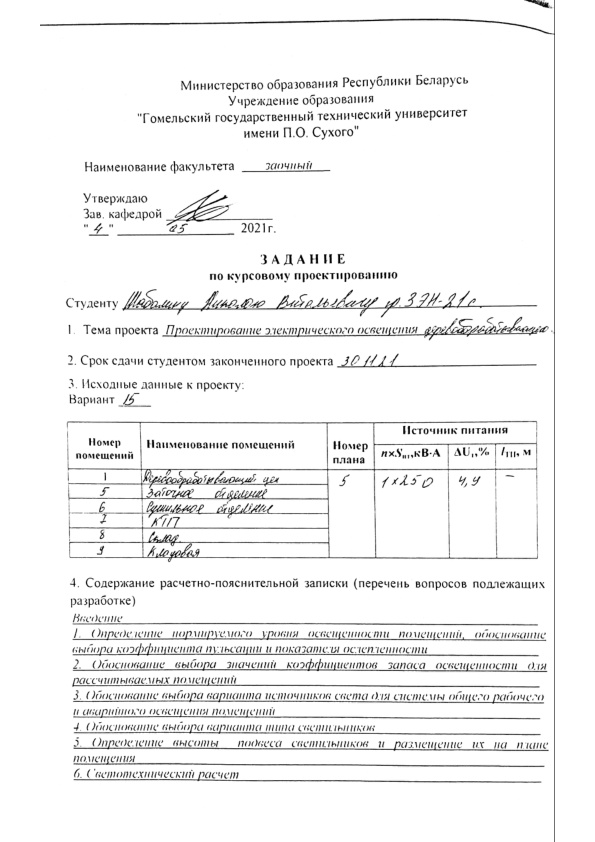 Министерство образования Республики Беларусь
Учреждение образования
"Гомельский государственный технический университет
имени П.О. Сухого"
Наименование факультета заочный
Утверждаю
Зав. кафедрой
"4" 05 2021г.
ЗАДАНИЕ
по курсовому проектированию
Студенту гр. ЗЭН-21с
1. Тема проекта Проектирование электрического освещения
2. Срок сдачи студентом законченного проекта 30 11 21
3. Исходные данные к проекту:
Вариант 15
Номер помещений Наименование помещений Номер плана Источник питания
n×Sнт,кВ·А ΔUт,% lТП, м
1 Деревообрабатывающий цех 5 1×250 4,4 –
5 Заточное отделение
6 Сушильное отделение
7 КТП
8 Склад
9 Кладовая
4. Содержание расчетно-пояснительной записки (перечень вопросов подлежащих
разработке)
Введение
1. Определение нормируемого уровня освещенности помещений, обоснование
выбора коэффициента пульсации и показателя ослепленности
2. Обоснование выбора значений коэффициентов запаса освещенности для
рассчитываемых помещений
3. Обоснование выбора варианта источников света для системы общего рабочего
и аварийного освещения помещений
4. Обоснование выбора варианта типа светильников
5. Определение высоты подвеса светильников и размещение их на плане
помещения
6. Светотехнический расчет